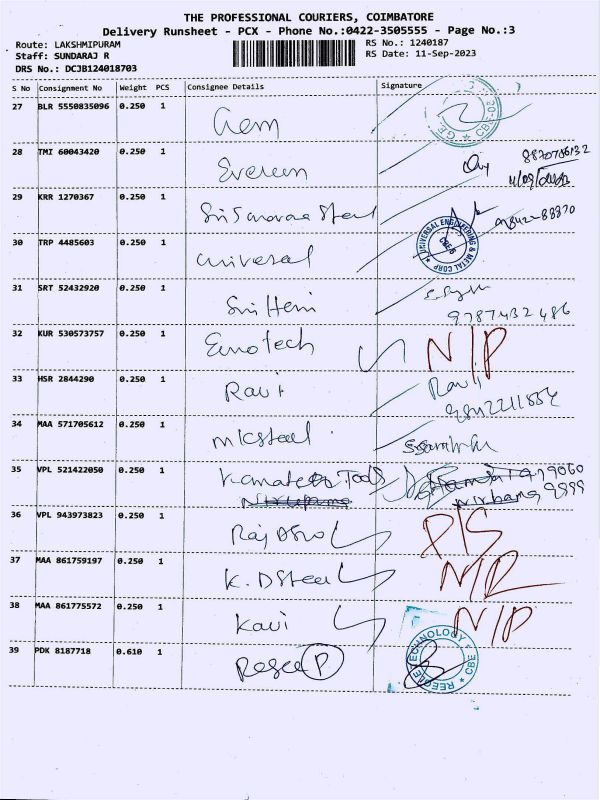 THE PROFESSIONAL COURIERS, COIMBATORE
Delivery Runsheet - PCX - Phone No.:0422-3505555 - Page No.:3
Route: LAKSHMIPURAM RS No.: 1240187
Staff: SUNDARAJ R RS Date: 11-Sep-2023
DRS No.: DCJB124018703
S No Consignment No Weight PCS Consignee Details Signature
27 BLR 5550835096 0.250 1 Gem
28 TMI 60043420 0.250 1 8870786132
29 KRR 1270367 0.250 1
30 TRP 4485603 0.250 1 universal UNIVERSAL ENGINEERING & METAL CORP CBE-6
31 SRT 52432920 0.250 1 9787432486
32 KUR 530573757 0.250 1 Eurotech N/P
33 HSR 2844290 0.250 1 Ravi Ravi
34 MAA 571705612 0.250 1 mksteel
35 VPL 521422050 0.250 1 Tools
36 VPL 943973823 0.250 1 P/S
37 MAA 861759197 0.250 1 K.D Steel N/R
38 MAA 861775572 0.250 1 Kavi N/P
39 PDK 8187718 0.610 1 P TECHNOLOGY CBE